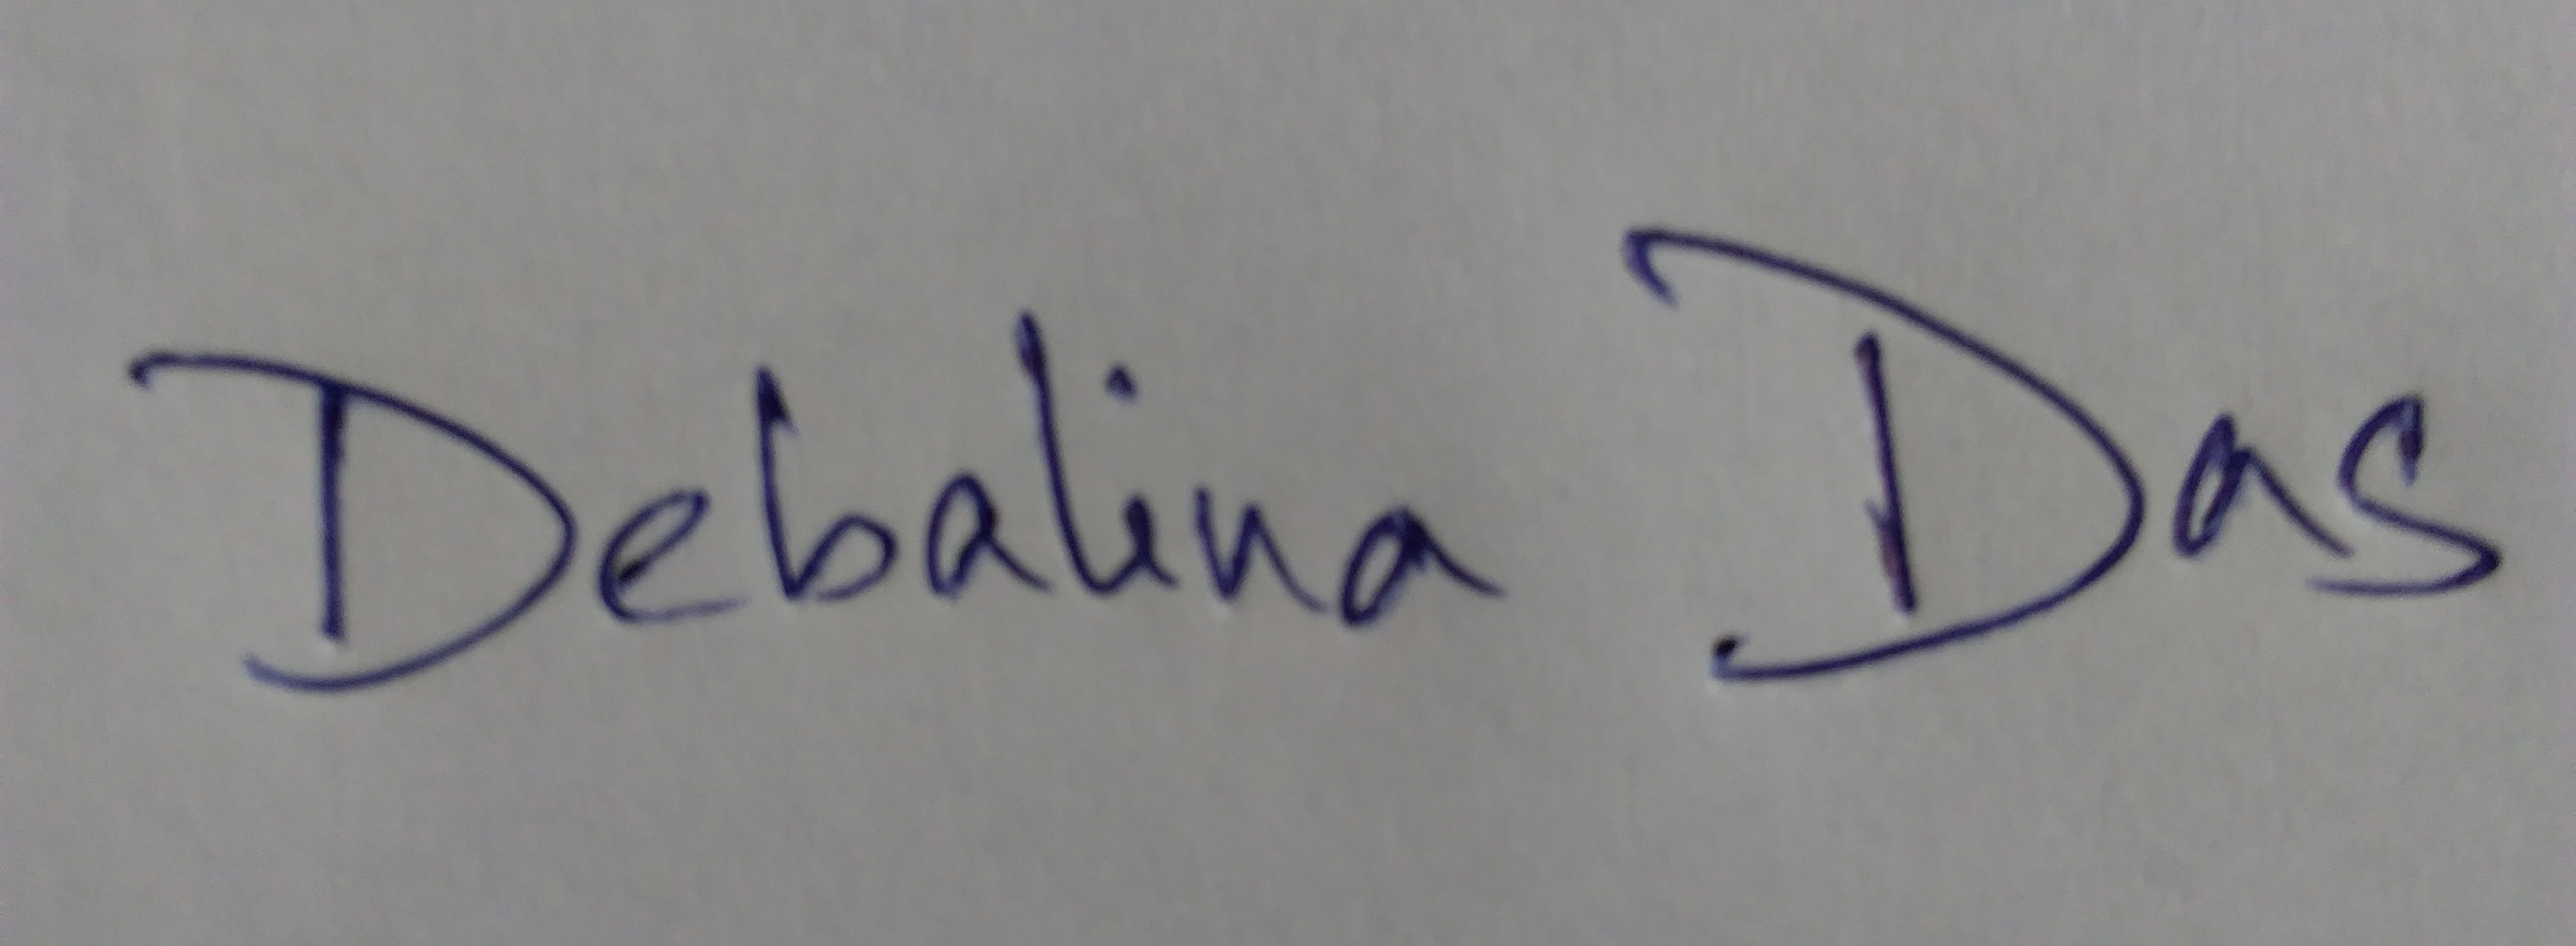 Debalina Das